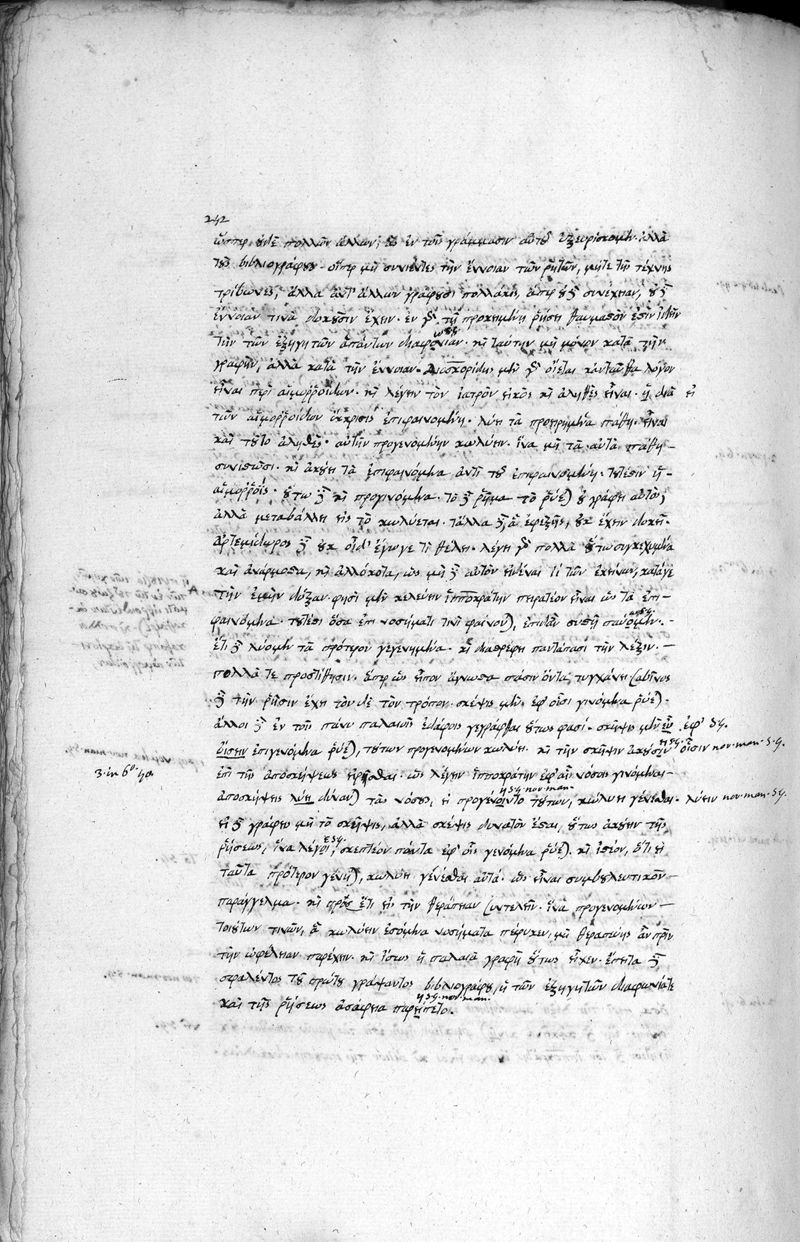 242
ὥσπερ οὐδὲ πολλῶν ἄλλων, ἃ ἐν τοῖς γράμμασιν αὐτοῦ ἐξευρίσκομεν. ἀλλὰ
τοὺς βιβλιογράφους. οἵπερ μὴ συνιέντες τὴν ἔννοιαν τῶν ῥητῶν, μήτε τῆς τέχνης
τρίβωνες, ἄλλα ἀντ' ἄλλων γράφουσι πολλάκις, ἅπερ οὐδὲ συνέχειαν, οὐδὲ
ἔννοιαν τινὰ δοκοῦσιν ἔχειν. ἐν δὲ τῇ προκειμένῃ ῥήσει θαυμαστὸν ἐστὶν ἰδεῖν
τὴν τῶν ἐξηγητῶν ἁπάντων διαφωνίαν. καὶ ταύτην μὴ μόνον κατὰ τὴν
γραφὴν, ἀλλὰ κατὰ τὴν ἔννοιαν. Διοσκορίδης μὲν γὰρ οἴεται κἀνταῦθα λόγον
εἶναι περὶ αἱμορροΐδων. καὶ λέγειν τὸν ἰατρὸν εἰκὸς καὶ ἀληθὲς εἶναι. ἡ διὰ
τῶν αἱμορροΐδων ἔκκρισις ἐπιφαινομένη. λύει τὰ προειρημένα πάθη. εἶναι
καὶ τοῦτο ἀληθὲς. αὐτὴν προγενομένην κωλύειν. ἵνα μὴ τὰ αὐτὰ πάθη
συνιστῶσι. καὶ ἀκούει τὰ ἐπιφαινόμενα ἀντὶ τοῦ ἐπιφαινομένη. τουτέστιν ἡ
αἱμορροΐς. οὕτω δὲ καὶ προγινόμενα. τὸ δὲ ῥῆμα τὸ ῥύεται οὐ γράφει αὐτὸς,
ἀλλὰ μεταβάλλει εἰς τὸ κωλύεται. τἆλλα δὲ ἃ ἐφεξῆς, οὐκ ἔχειν δοκεῖ.
ἀρτεμίδωρος δὲ οὐκ οἶδ' ἔγωγε τί θέλει. λέγει γὰρ πολλὰ οὕτω συγκεχυμένα
καὶ ἀνάρμοστα, καὶ ἀλλόκοτα, ὡς μὴ δὲ αὐτὸν εἰδέναι τὶ τῶν ἐκείνων, κατά γε
τὴν ἐμὴν δόξαν. φησὶ μὲν κελεύειν ἱπποκράτην πειρατέον εἶναι ὡς τὰ ἐπι
φαινόμενα τουτέστι ὅσα ἐπὶ νοσήματι τινὶ φαίνονται, ἐπειδὰν συνθῇ
ἔτι δὲ λύομεν τὰ πρότερον γεγενημένα. καὶ διαστρέφει παντάπασι τὴν λέξιν.
πολλὰ τε προστίθησιν. ἅπερ ὡς εἶπον ἄγνωστα πᾶσιν ὄντα τυγχάνει. σαβῖνος
δὲ τὴν ῥῆσιν ἔχει τόνδε τὸν τρόπον. σκέψις μὲν ἐφ' οἷσι γινόμενα ῥύεται.
ἄλλοι δὲ ἐν τοῖς πάνυ παλαιοῖς ἐδάφοις γεγράφθαι οὕτως φασί. σκῆψις μὲν ἐφ' 54.
οἷσιν ἐπιγενόμενα ῥύεται, τούτων προγενομένων κωλύει. καὶ τὴν σκῆψιν ἀκούουσιν οἷσιν nov. man. 54.
3. in 6º. 40
ἐπὶ τῆς ἀποσκήψεως εἰρῆσθαι. ὡς λέγειν ἱπποκράτην ἐφ' αἷς νόσοις γινόμεναι
ἀποσκήψεις λύει δύνανται τὰς νόσους, εἰ προγενοίντο τούτων, κωλύει γενέσθαι. λύειν nov. man. 54.
ἢ 54. nov. man.
εἰ δὲ γράφεις μὴ τὸ σκῆψις, ἀλλὰ σκέψις δυνατὸν ἔσται, οὕτως ἀκούειν τῆς
ῥήσεως, ἵνα λέγοι, σκεπτέον πάντα ἐφ' οἷς γενόμενα ῥύεται. καὶ ἰστέον, ὅτι εἰ
ταῦτα πρότερον γένηται, κωλύει γενέσθαι αὐτά. ὡς εἶναι συμβουλευτικὸν
παράγγελμα. καὶ πρὸς ἔτι εἰς τὴν θεραπείαν συντελεῖν. ἵνα προγενομένων
τοιούτων τινῶν, ἃ κωλύειν ἐσόμενα νοσήματα πέφυκεν, μὴ θεραπεύῃς ἂν πρὶν
τὴν ὠφέλειαν παρέχειν. καὶ ἴσως ἡ παλαιὰ γραφὴ οὕτως εἶχεν. ἔπειτα δὲ
σφαλέντος τοῦ πρώτου γράψαντος βιβλιογράφου, ἡ τῶν ἐξηγητῶν διαφωνία τε
καὶ τῆς ῥήσεως ἀσάφεια παρείπετο.
ἢ 54. nov. man.